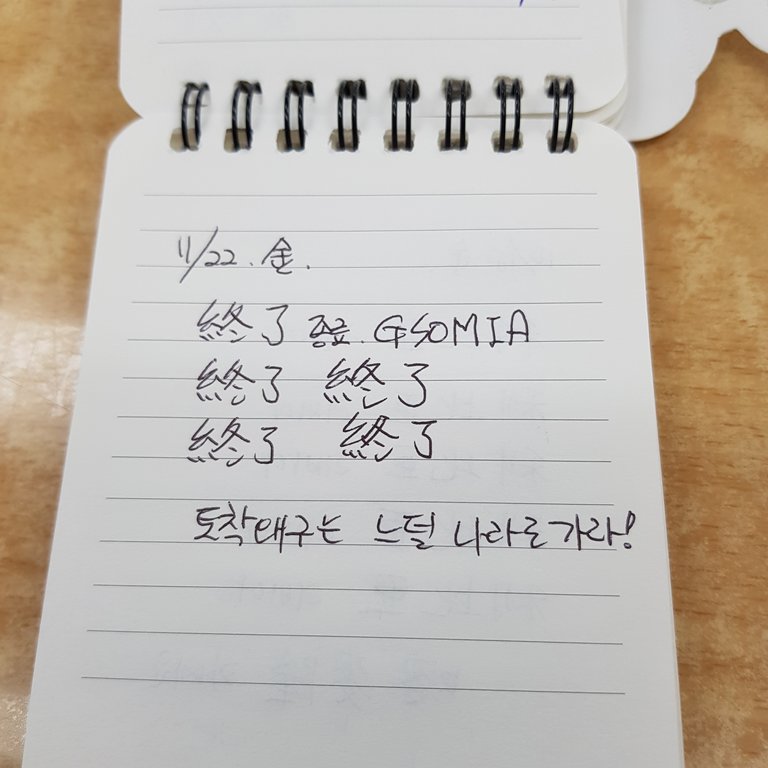 11/22. 金.
終了 종료. GSOMIA
終了 終了
終了 終了
토착왜구는 느덜 나라로 가라!